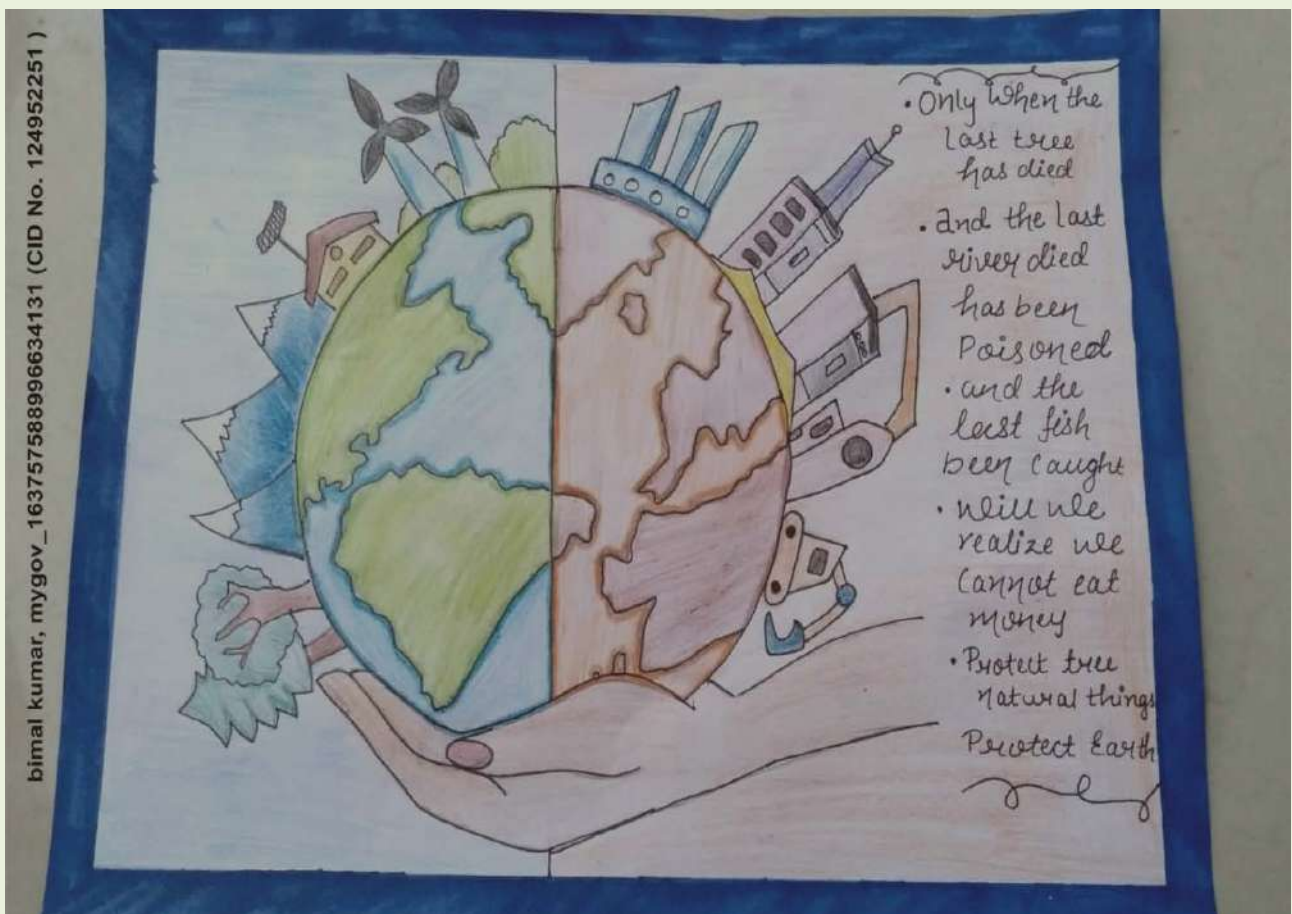 bimal kumar, mygov_163757588996634131 (CID No. 124952251 )
• Only When the
last tree
has died
• and the last
river died
has been
Poisoned
• and the
last fish
been Caught
• will we
realize we
Cannot eat
money
• Protect tree
natural things
Protect Earth